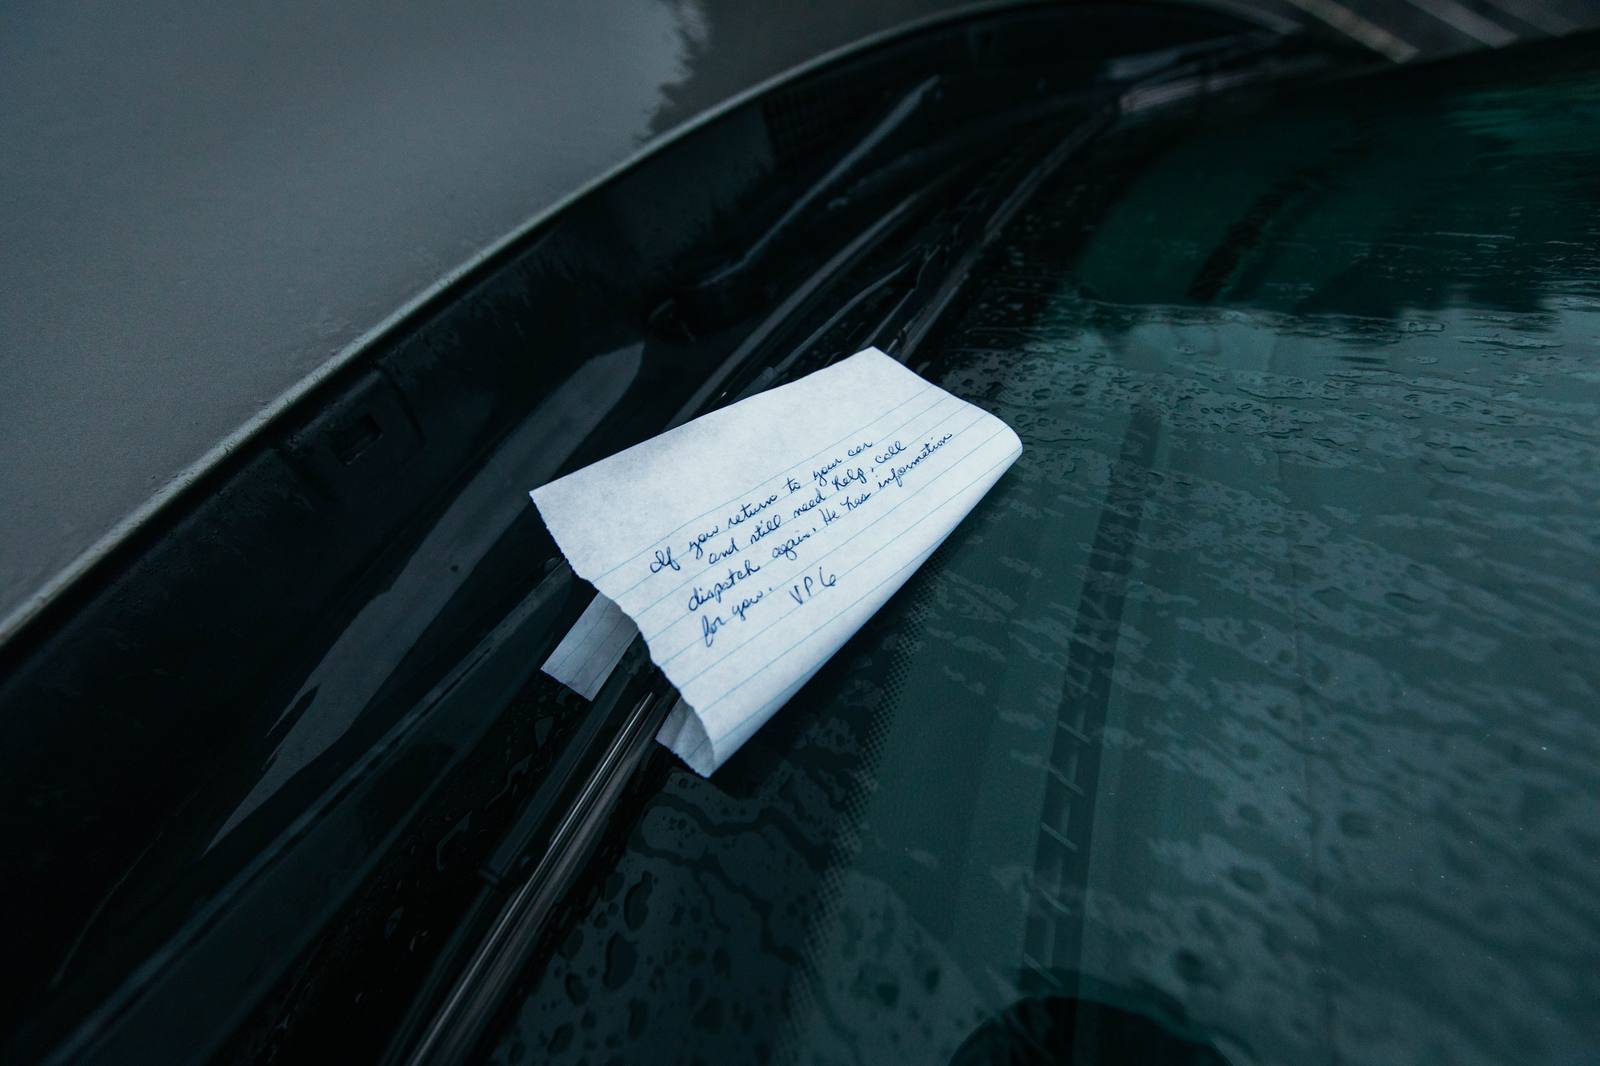 If you return to your car
and still need help, call
dispatch again. He has information
for you. VP6